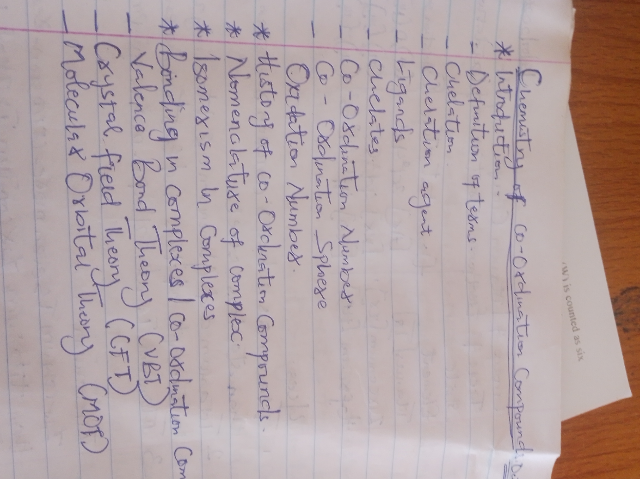 Chemistry of Co-Ordination Compound
* Introduction.
- Definition of terms.
- Chelation
- Chelation agent
- Ligands
- Chelates.
- Co-Ordination Number.
- Co-Ordination Sphere
- Oxidation Number.
* History of Co-Ordination Compounds.
* Nomenclature of Complex.
* Isomerism in Complexes
* Bonding in Complexes / Co-Ordination Com
- Valence Bond Theory (VBT)
- Crystal field Theory (CFT)
- Molecular Orbital Theory (MOT)
(W) is counted as six